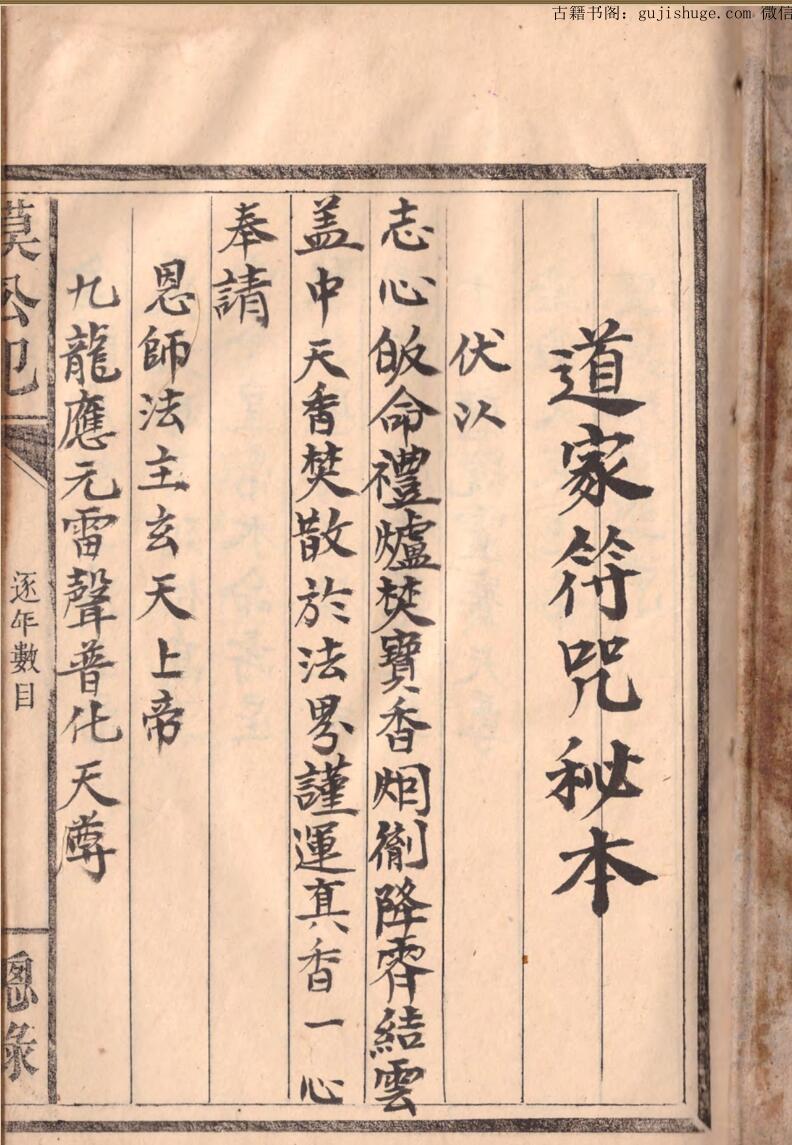 古籍书阁：gujishuge.com 微信
道家符咒秘本
伏以
志心皈命禮爐焚寶香烟衝降霄結雲
盖中天香焚散於法界謹運真香一心
奉請
恩師法主玄天上帝
九龍應元雷聲普化天尊
逐年數目
總錄